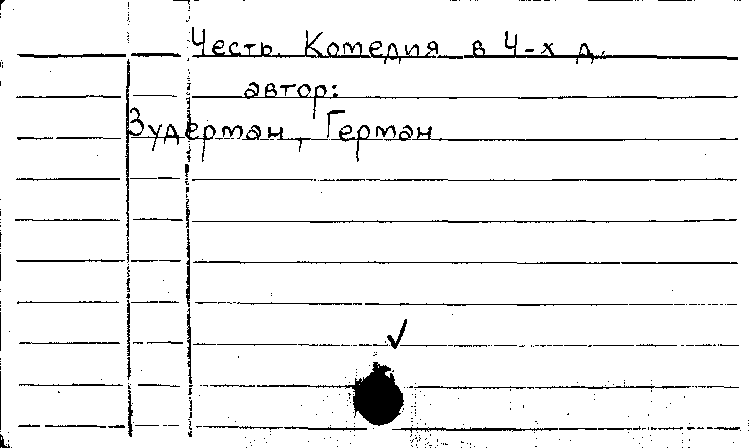 Честь. Комедия в 4-х д.
автор:
Зудерман, Герман.